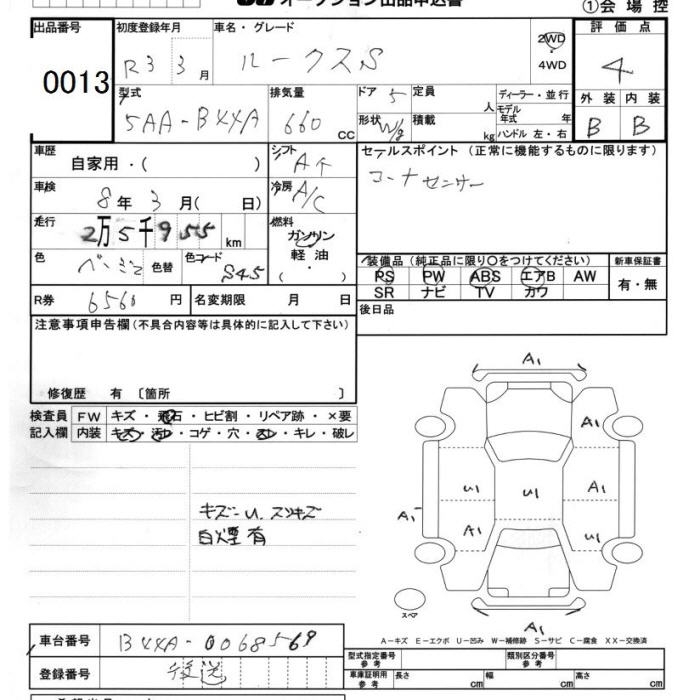 オークション出品申込書
①会場控
出品番号 0013
初度登録年月 R3 3月
車名・グレード ルークスS
2WD・4WD
評価点 4
型式 5AA-B44A
排気量 660 CC
ドア 5
形状 W/g
定員 人
積載 kg
ディーラー・並行
モデル年式 年
ハンドル 左・右
外装 B
内装 B
車歴 自家用・( )
シフト Aイ
セールスポイント (正常に機能するものに限ります)
コーナーセンサー
車検 8年 3月( 日)
冷房 A/C
走行 2万5千955km
燃料 ガソリン
軽油
( ・ )
色 ベージュ
色替
色コード S45
装備品 (純正品に限り〇をつけてください)
新車保証書
PS PW ABS エアB AW
有・無
SR ナビ TV カワ
R券 6560円
名変期限 月 日
後日品
注意事項申告欄(不具合内容等は具体的に記入して下さい)
修復歴 有 〔箇所 〕
検査員記入欄
FW キズ・飛石・ヒビ割・リペア跡・×要
内装 キズ・汚レ・コゲ・穴・スレ・キレ・破レ
キズ-U.スリキズ
白煙有
A1
A1
U1 U1 A1
A1 A1 U1
スペア
A1
A-キズ E-エクボ U-凹み W-補修跡 S-サビ C-腐食 XX-交換済
車台番号 B44A-0068569
登録番号 後送
型式指定番号 参考
類別区分番号 参考
車庫証明用 参考
長さ cm
幅 cm
高さ cm